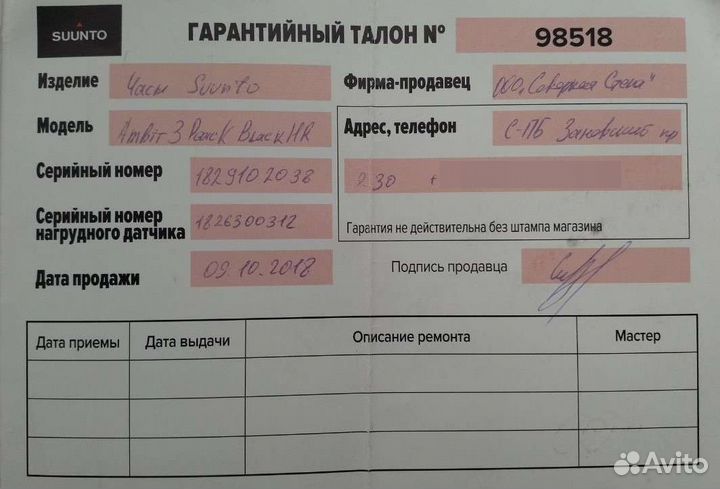 SUUNTO
ГАРАНТИЙНЫЙ ТАЛОН № 98518
Изделие Часы Suunto
Модель Ambit 3 Peack Black HR
Серийный номер 1829102038
Серийный номер
нагрудного датчика 1826300312
Дата продажи 09.10.2018
Фирма-продавец ООО „Северная Стена"
Адрес, телефон С-ПБ Заневский пр
д 30 +
Гарантия не действительна без штампа магазина
Подпись продавца
Дата приемы Дата выдачи Описание ремонта Мастер
Avito